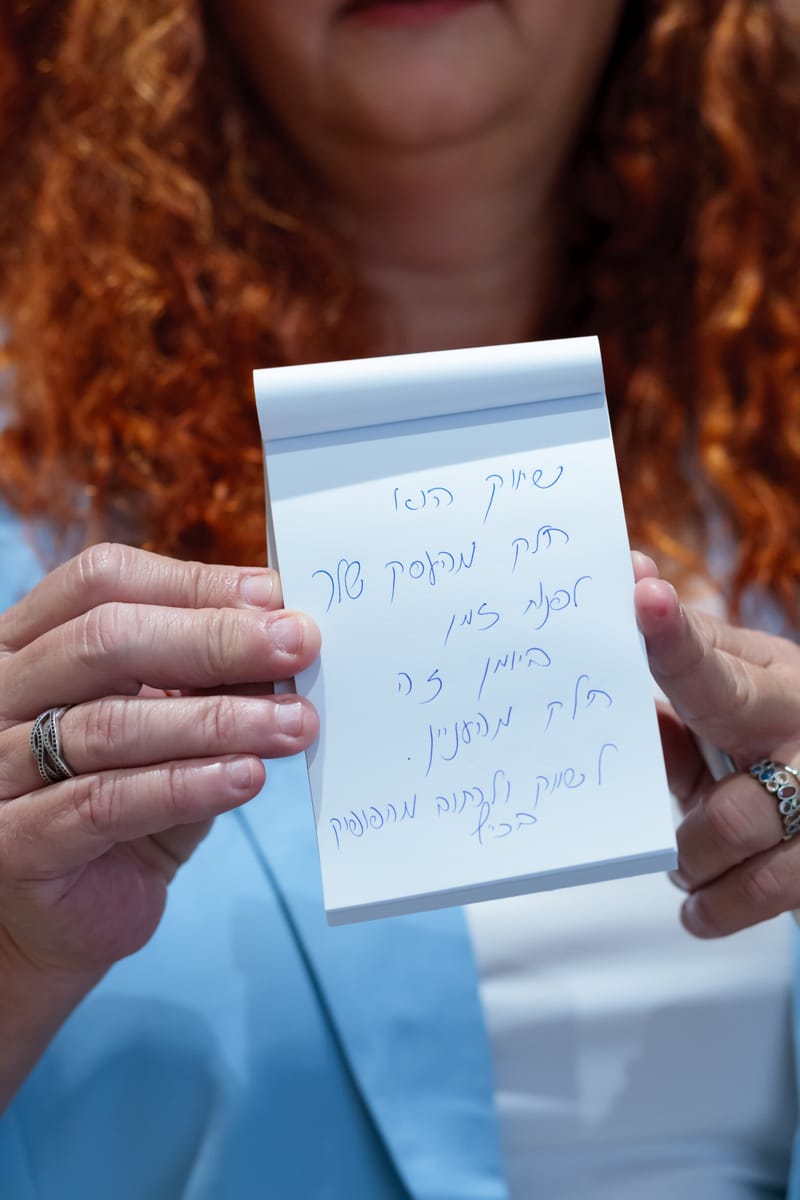 שיווק הוא
חלק מהעסק שלך
לפנות זמן
ביומן זה
חלק מהעניין.
לשווק ולכתוב מהפופיק
בכיף